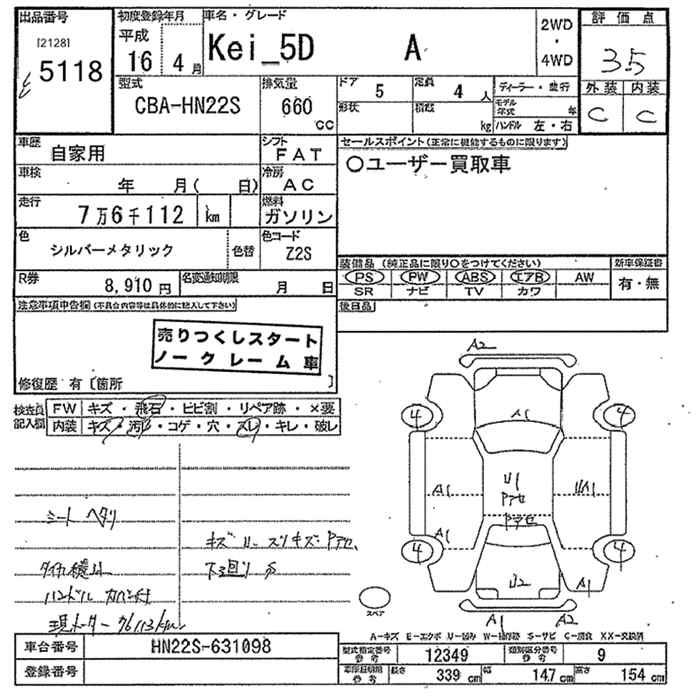 出品番号 初度登録年月 車名・グレード 2WD・4WD 評価点
[2128]
5118 平成16年4月 Kei_5D A 3.5
型式 排気量 ドア 5 定員 4人 ディーラー・並行 外装 内装
CBA-HN22S 660cc 形状 積載 kg モデル年式 年 C C
ハンドル 左・右
車歴 自家用 シフト FAT セールスポイント(正常に機能するものに限ります)
車検 年 月( 日) 冷房 AC ○ユーザー買取車
走行 7万6千112 km 燃料 ガソリン
色 シルバーメタリック 色替 色コード Z2S
装備品(純正品に限り○をつけてください) 新車保証書
R券 8,910円 名変通知期限 月 日 PS PW ABS エアB AW 有・無
SR ナビ TV カワ
注意事項申告欄(不具合内容等は具体的に記入して下さい) 後日品
売りつくしスタート
ノークレーム車
修復歴 有〔箇所 〕
検査員記入欄 FW キズ・飛石・ヒビ割・リペア跡・×要
内装 キズ・汚レ・コゲ・穴・スレ・キレ・破レ
A2
A1
4 4
A1 U1 UA1
アセ
A1
4 4
U2 A1
A1 A2
スペア
シート ヘタリ
キズ U ー スリキズ アセ、
下廻り サ
ハンドル カバー付
現メーター 76113km
A-キズ E-エクボ U-凹み W-補修跡 S-サビ C-腐食 XX-交換済
車台番号 HN22S-631098 型式指定番号 参考 12349 類別区分番号 参考 9
登録番号 車検証記載 参考 長さ 339cm 幅 147cm 高さ 154cm